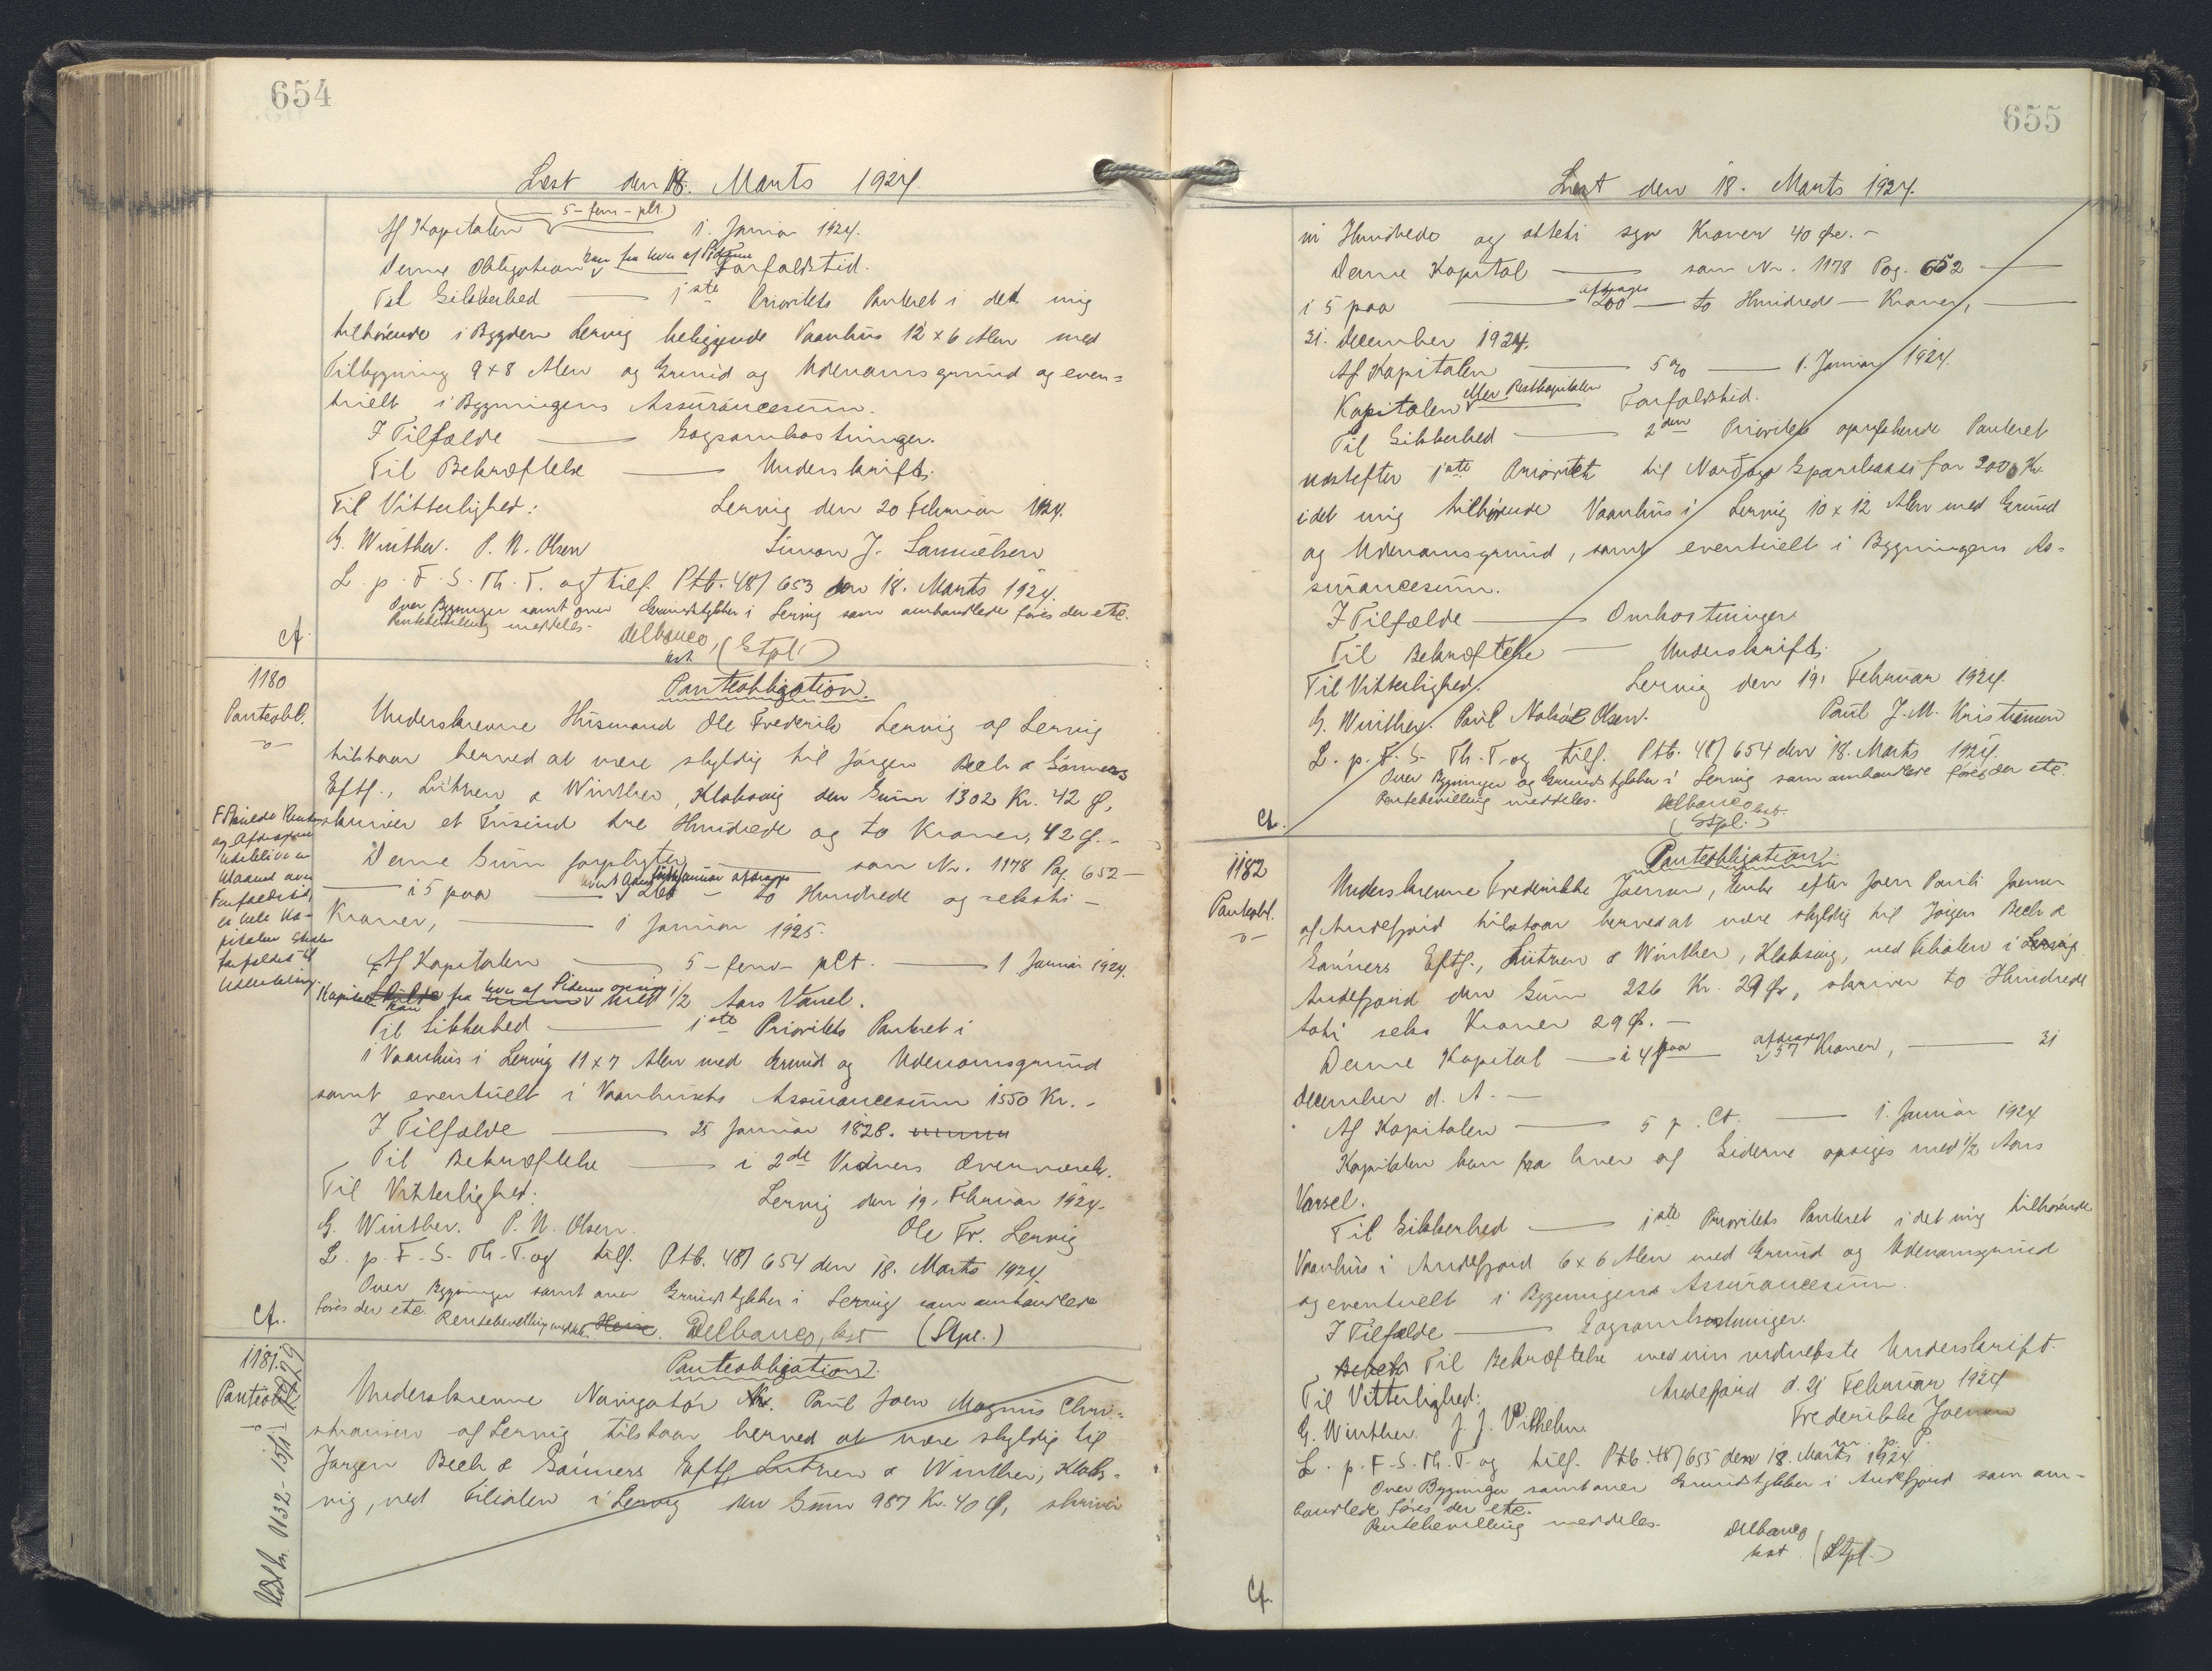 654
Læst den 18. Marts 1924.
Af Kapitalen (— 5 - fem - pCt.) 1. Januar 1924.
Denne Obligation kan fra hver af Siderne Forfaldstid.
Til Sikkerhed — 1ste Prioritets Panteret i det mig
tilhørende i Bygden Lervig beliggende Vaanhus 12 x 6 Alen med
Tilbygning 9 x 8 Alen og Grund og Udenomsgrund og even=
tuelt i Bygningens Assurancesum.
I Tilfælde — Sagsomkostninger.
Til Bekræftelse — Underskrift.
Til Vitterlighed: Lervig den 20 Februar 1924.
G. Winther. P. N. Olsen Simon J. Samuelsen
L. p. F. S. Th. T. og tilf. Ptb. 48/653 den 18. Marts 1924.
Over Bygninger samt over Grundstykker i Lervig som omhandlede føres der ete.
Rentebevilling meddeles.
Delbanco, kst. (Stpl.)
Cf.
1180
Panteobl.
Panteobligation.
Underskrevne Husmand Ole Frederik Lervig af Lervig
tilstaar herved at være skyldig til Jørgen Bech & Sönners
Eftf., Lützen & Winther, Klaksvig den Sum 1302 Kr. 42 Ø,
skriver et Tusind tre Hundrede og to Kroner, 42 Ø. -
Denne Sum forpligter — som Nr. 1178 Pag. 652 —
— i 5 paa — hvert Aars 1ste Januar afdrages 260 - to Hundrede og seksti -
Kroner, — 1 Januar 1925.
Af Kapitalen — 5 - fem - pCt. — 1 Januar 1924.
Kapitalen kan fra hver af Siderne opsiges med 1/2 Aars Varsel.
Til Sikkerhed — 1ste Prioritets Panteret i
1 Vaanhus i Lervig 11 x 7 Alen med Grund og Udenomsgrund
samt eventuelt i Vaanhusets Assurancesum 1550 Kr. -
I Tilfælde — 25 Januar 1828.
Til Bekræftelse — i 2de Vidners Overværelse.
Til Vitterlighed. Lervig den 19. Februar 1924.
G. Winther. P. N. Olsen. Ole Fr. Lervig
L. p. F. S. Th. T. og tilf. Ptb. 48/654 den 18. Marts 1924.
Over Bygninger samt over Grundstykker i Lervig som omhandlede
føres der ete. Rentebevilling meddeles. Delbanco, kst (Stpl.)
Cf.
1181.
Panteobl.
Panteobligation.
Underskrevne Navigatør Paul Joen Magnus Chri-
stiansen af Lervig tilstaar herved at være skyldig til
Jørgen Bech & Sönners Eftf, Lützen & Winther, Klaks-
vig, ved Filialen i Lervig den Sum 987 Kr. 40 Ø, skriver
655
Læst den 18. Marts 1924.
ni Hundrede og otteti syv Kroner 40 Øre. -
Denne Kapital — som Nr. 1178 Pag. 652 —
i 5 paa — afdrages 200 — to Hundrede — Kroner, —
31. December 1924.
Af Kapitalen — 5 % — 1. Januar 1924.
Kapitalen eller Restkapitalen — Forfaldstid.
Til Sikkerhed — 2den Prioritets oprykkende Panteret
næstefter 1ste Prioritet til Norðoya Sparikassi for 2000 Kr.
i det mig tilhørende Vaanhus i Lervig 10 x 12 Alen med Grund
og Udenomsgrund, samt eventuelt i Bygningens As-
surancesum.
I Tilfælde — Omkostninger
Til Bekræftelse — Underskrift.
Til Vitterlighed. Lervig den 19. Februar 1924.
G. Winther. Paul Nolsøe Olsen. Paul J. M. Kristiansen
L. p. F. S. Th. T. og tilf. Ptb. 48/654 den 18. Marts 1924.
Over Bygninger og Grundstykker i Lervig som omhandlede føres der ete.
Rentebevilling meddeles. Delbanco kst.
(Stpl.)
Cf.
1182
Panteobl.
Panteobligation.
Underskrevne Frederikke Joensen, Enke efter Joen Pauli Joensen
af Andefjord tilstaar herved at være skyldig til Jørgen Bech &
Sönners Eftf., Lützen & Winther, Klaksvig, ved Filialen i Lervig
Andefjord den Sum 226 Kr. 29 Ør, skriver to Hundrede
seks Kroner 29 Ø. -
Denne Kapital — i 4 paa — afdrages 57 Kroner, — 31
December d. A. -
Af Kapitalen — 5 p. Ct. — 1. Januar 1924
Kapitalen kan fra hver af Siderne opsiges med 1/2 Aars
Varsel.
Til Sikkerhed — 1ste Prioritets Panteret i det mig tilhørende
Vaanhus i Andefjord 6 x 6 Alen med Grund og Udenomsgrund
og eventuelt i Bygningens Assurancesum.
I Tilfælde — Sagsomkostninger.
Til Bekræftelse med min Underskrift.
Til Vitterlighed: Andefjord d. 21 Februar 1924
G. Winther. J. J. Vilhelm. Frederikke Joensen
m. p. P.
L. p. F. S. Th. T. og tilf. Ptb. 48/655 den 18. Marts 1924
Over Bygninger samt over Grundstykker i Andefjord som om-
handlede føres der ete.
Rentebevilling meddeles. Delbanco
kst. (Stpl.)
Cf.